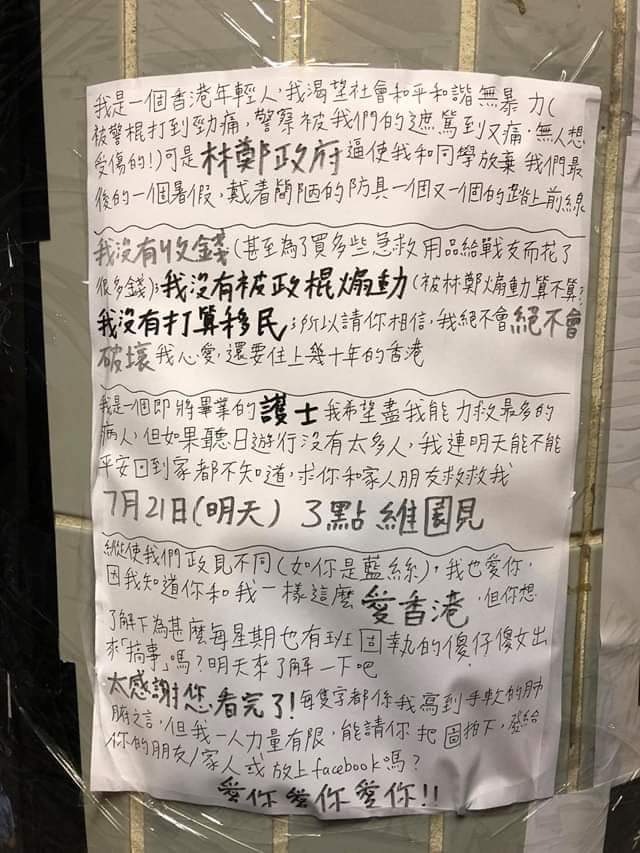 我是一個香港年輕人，我渴望社會和平和諧無暴力(
被警棍打到勁痛，警察被我們的遮篤到又痛，無人想
受傷的!)可是林鄭政府逼使我和同學放棄我們最
後的一個暑假，戴着簡陋的防具一個又一個的踏上前線
我沒有收錢(甚至為了買多些急救用品給戰友而花了
很多錢);我沒有被政棍煽動(被林鄭煽動算不算?
我沒有打算移民;所以請你相信，我絕不會絕不會
破壞我心愛，還要住上幾十年的香港
我是一個即將畢業的護士我希望盡我能力救最多的
病人，但如果聽日遊行沒有太多人，我連明天能不能
平安回到家都不知道，求你和家人朋友救救我
7月21日(明天) 3點維園見
縱使我們政見不同(如你是藍絲)，我也愛你，
因我知道你和我一樣這麼愛香港，但你想
了解下為甚麼每星期也有班固執的傻仔傻女出
來「搞事」嗎?明天來了解一下吧
太感謝您看完了!每隻字都係我寫到手軟的肺
腑之言，但我一人力量有限，能請你把圖拍下，發給
你的朋友/家人或放上facebook嗎?
愛你愛你愛你!!